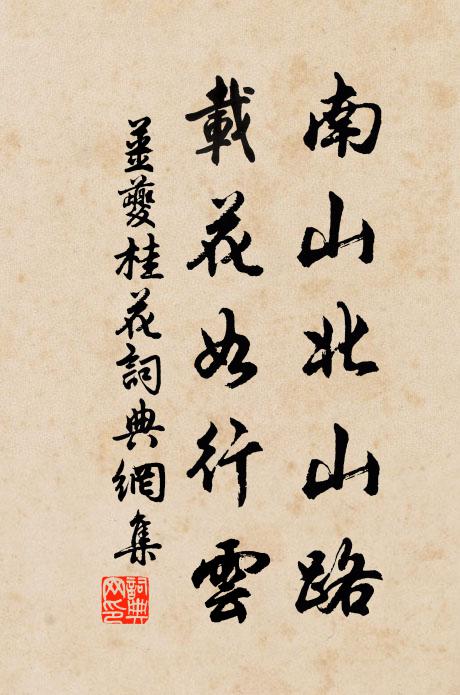 南山北山路
載花如行雲
姜夔桂花詞典網集
詞典網印